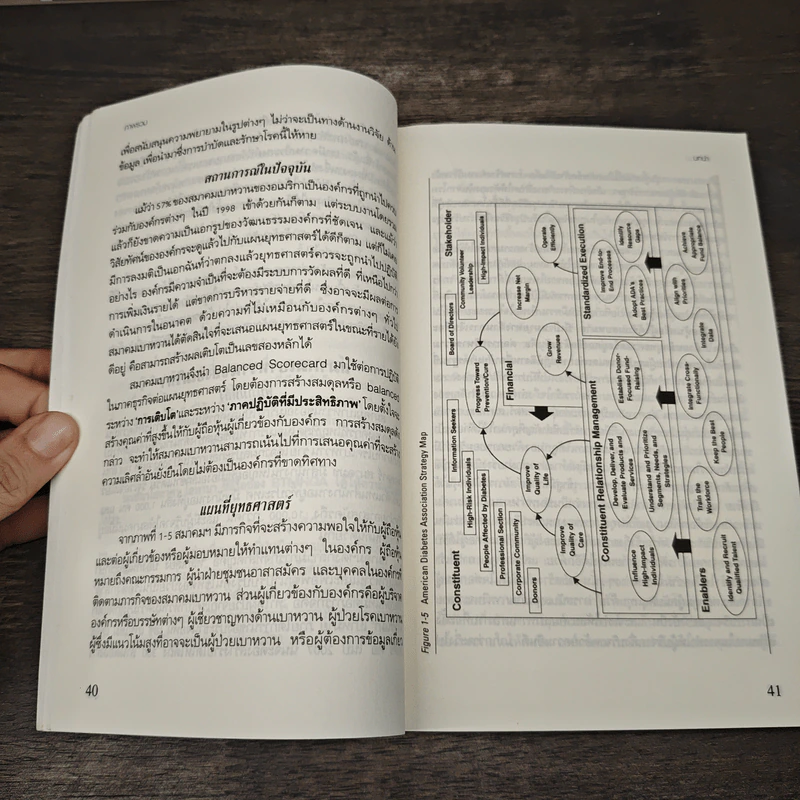 ภาพรวม
เพื่อสนับสนุนความพยายามในรูปต่างๆ ไม่ว่าจะเป็นทางด้านงานวิจัย ด้าน
ข้อมูล เพื่อนำมาซึ่งการบำบัดและรักษาโรคนี้ให้หาย
สถานการณ์ในปัจจุบัน
แม้ว่า 57% ของสมาคมเบาหวานของอเมริกาเป็นองค์กรที่ถูกนำไป
ร่วมกับองค์กรต่างๆ ในปี 1998 เข้าด้วยกันก็ตาม แต่ระบบงานโดยรวม
แล้วก็ยังขาดความเป็นเอกรูปของวัฒนธรรมองค์กรที่ชัดเจน และแม้ว่า
วิสัยทัศน์ขององค์กรจะดูแล้วไปกับแผนยุทธศาสตร์ได้ดีก็ตาม แต่ก็ไม่เคย
มีการลงมติเป็นเอกฉันท์ว่าตกลงแล้วยุทธศาสตร์ควรจะถูกนำไปปฏิบัติ
อย่างไร องค์กรมีความจำเป็นที่จะต้องมีระบบการวัดผลที่ดี ที่เหนือไปกว่า
การเพิ่มเงินรายได้ แต่ขาดการบริหารรายจ่ายที่ดี ซึ่งอาจจะมีผลต่อการ
ดำเนินการในอนาคต ด้วยความที่ไม่เหมือนกับองค์กรต่างๆ ทั่วไป
สมาคมเบาหวานได้ตัดสินใจที่จะเสนอแผนยุทธศาสตร์ในขณะที่รายได้ยัง
ดีอยู่ คือสามารถสร้างผลเติบโตเป็นเลขสองหลักได้
สมาคมเบาหวานจึงนำ Balanced Scorecard มาใช้ต่อการปฏิบัติ
ในภาคธุรกิจต่อแผนยุทธศาสตร์ โดยต้องการสร้างสมดุลหรือ balanced
ระหว่าง 'การเติบโต'และระหว่าง 'ภาคปฏิบัติที่มีประสิทธิภาพ' โดยตั้งใจจะ
สร้างคุณค่าที่สูงขึ้นให้กับผู้ถือหุ้นผู้เกี่ยวข้องกับองค์กร การสร้างสมดุลดัง
กล่าว จะทำให้สมาคมเบาหวานสามารถเน้นไปที่การเสนอคุณค่าที่จะสร้าง
ความเลิศล้ำอันยั่งยืนโดยไม่ต้องเป็นองค์กรที่ขาดทิศทาง
แผนที่ยุทธศาสตร์
จากภาพที่ 1-5 สมาคมฯ มีภารกิจที่จะสร้างความพอใจให้กับผู้ถือหุ้น
และต่อผู้เกี่ยวข้องหรือผู้มอบหมายให้ทำแทนต่างๆ ในองค์กร ผู้ถือหุ้น
หมายถึงคณะกรรมการ ผู้นำฝ่ายชุมชนอาสาสมัคร และบุคคลในองค์กรที่
ติดตามภารกิจของสมาคมเบาหวาน ส่วนผู้เกี่ยวข้องกับองค์กรคือผู้บริจาค
องค์กรหรือบรรษัทต่างๆ ผู้เชี่ยวชาญทางด้านเบาหวาน ผู้ป่วยโรคเบาหวาน
ผู้ซึ่งมีแนวโน้มสูงที่อาจจะเป็นผู้ป่วยเบาหวาน หรือผู้ต้องการข้อมูลเกี่ยว
40
บทนำ
Figure 1-5 American Diabetes Association Strategy Map
Constituent
Stakeholder
Information Seekers
High-Risk Individuals
People Affected by Diabetes
Professional Section
Corporate Community
Donors
Board of Directors
Community Volunteer
Leadership
High-Impact Individuals
Progress Toward
Prevention/Cure
Improve
Quality of
Life
Improve
Quality of
Care
Financial
Increase Net
Margin
Grow
Revenues
Operate
Efficiently
Constituent Relationship Management
Influence
High-Impact
Individuals
Develop, Deliver, and
Evaluate Products and
Services
Understand and Prioritize
Segments, Needs, and
Strategies
Establish Donor-
Focused Fund-
Raising
Standardized Execution
Improve End-to-
End Processes
Adopt ADA's
Best Practices
Identify
Resource
Gaps
Enablers
Identify and Recruit
Qualified Talent
Train the
Workforce
Keep the Best
People
Integrate Cross-
Functionally
Integrate
Data
Align with
Priorities
Achieve
Appropriate
Fund Balance
41